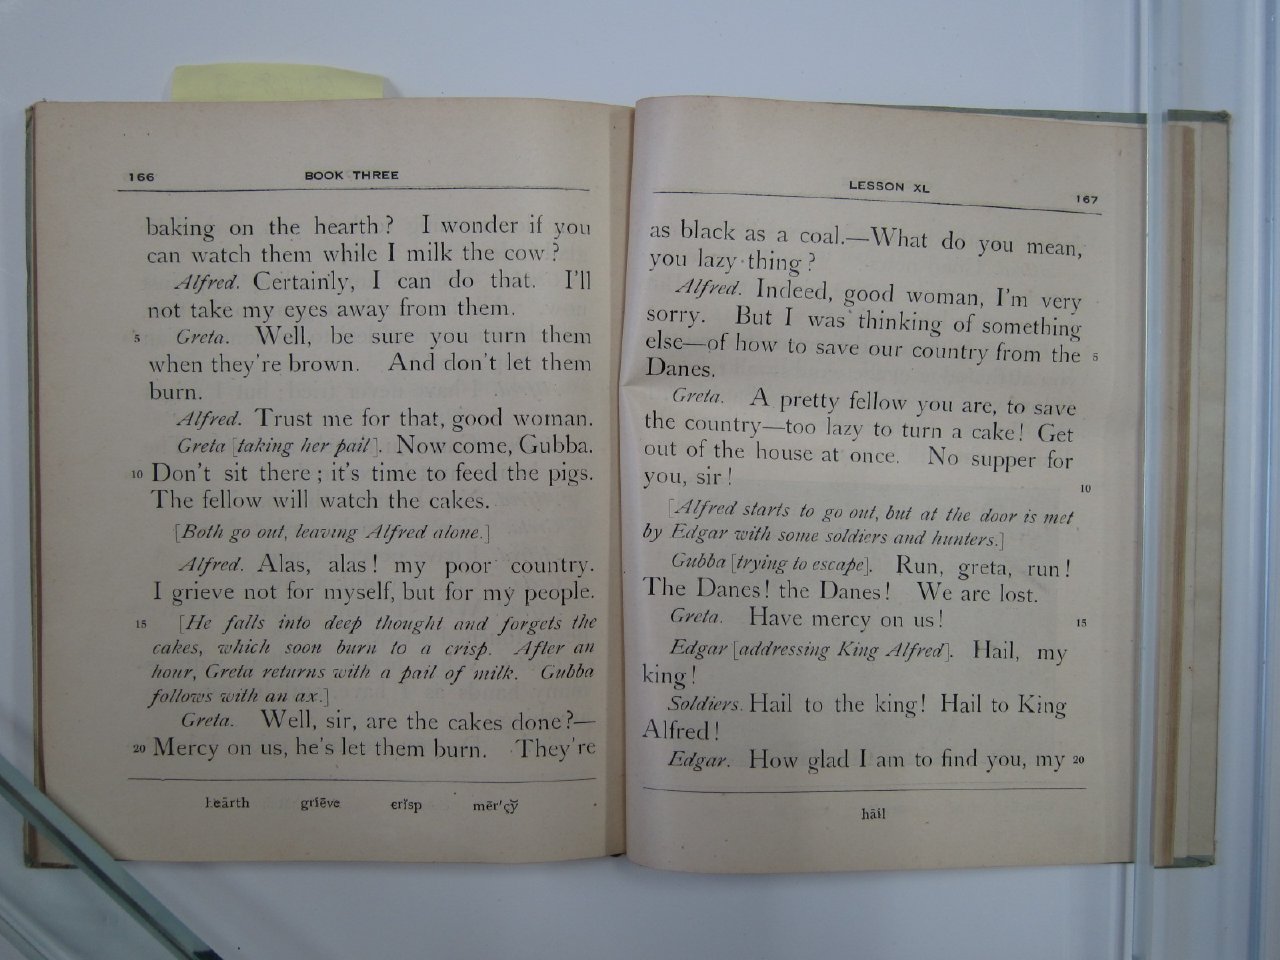 166
BOOK THREE
baking on the hearth? I wonder if you
can watch them while I milk the cow?
Alfred. Certainly, I can do that. I'll
not take my eyes away from them.
5 Greta. Well, be sure you turn them
when they're brown. And don't let them
burn.
Alfred. Trust me for that, good woman.
Greta [taking her pail]. Now come, Gubba.
10 Don't sit there; it's time to feed the pigs.
The fellow will watch the cakes.
[Both go out, leaving Alfred alone.]
Alfred. Alas, alas! my poor country.
I grieve not for myself, but for my people.
15 [He falls into deep thought and forgets the
cakes, which soon burn to a crisp. After an
hour, Greta returns with a pail of milk. Gubba
follows with an ax.]
Greta. Well, sir, are the cakes done?—
20 Mercy on us, he's let them burn. They're
heärth griēve crĭsp mẽr'çy̆
LESSON XL
167
as black as a coal.—What do you mean,
you lazy thing?
Alfred. Indeed, good woman, I'm very
sorry. But I was thinking of something
else—of how to save our country from the 5
Danes.
Greta. A pretty fellow you are, to save
the country—too lazy to turn a cake! Get
out of the house at once. No supper for
you, sir! 10
[Alfred starts to go out, but at the door is met
by Edgar with some soldiers and hunters.]
Gubba [trying to escape]. Run, greta, run!
The Danes! the Danes! We are lost.
Greta. Have mercy on us! 15
Edgar [addressing King Alfred]. Hail, my
king!
Soldiers. Hail to the king! Hail to King
Alfred!
Edgar. How glad I am to find you, my 20
hāil